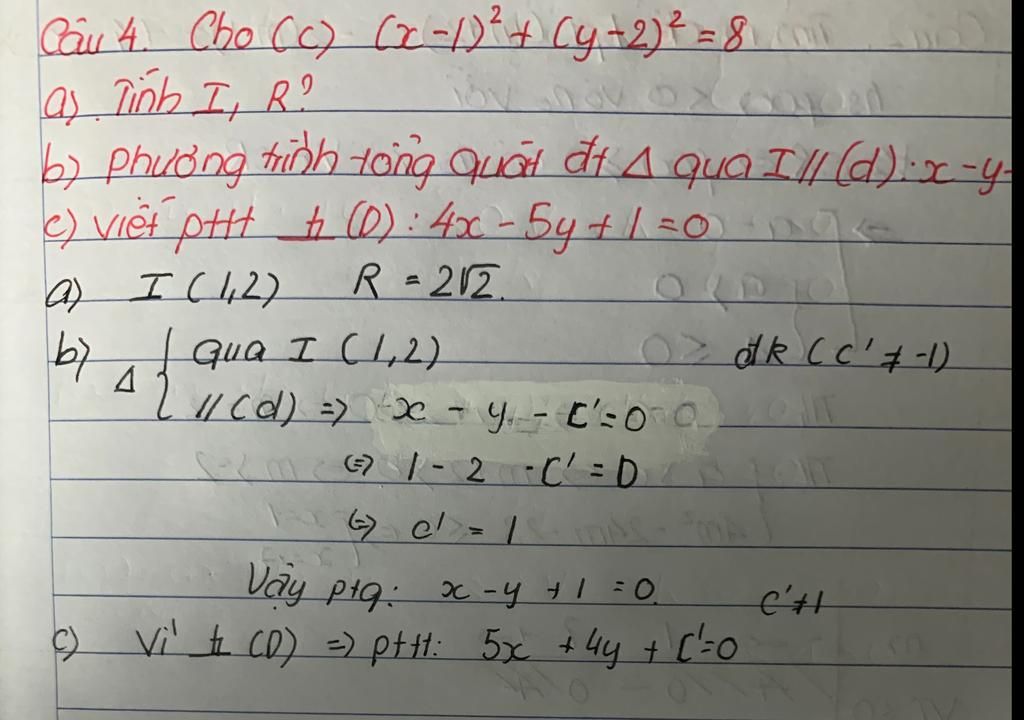 Câu 4. Cho (C) (x-1)² + (y-2)² = 8
a) Tính I, R?
b) phương trình tổng quát đt Δ qua I // (d): x-y-
c) viết pttt ⊥ (D): 4x - 5y + 1 = 0
a) I (1,2) R = 2√2.
b) Δ { qua I (1,2) đk (C' ≠ -1)
// (d) => x - y - C' = 0
<=> 1 - 2 - C' = 0
<=> C' = 1
Vậy ptq: x - y + 1 = 0. C' ≠ 1
c) Vì ⊥ (D) => pttt: 5x + 4y + C' = 0